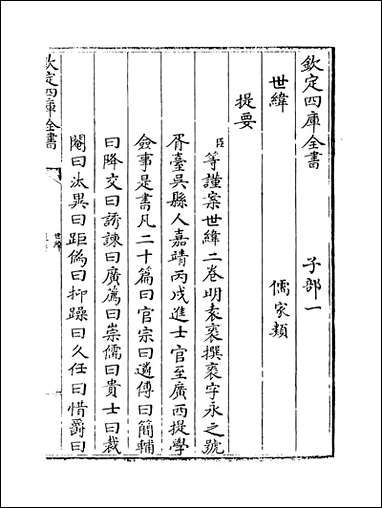 欽定四庫全書 子部一
世緯 儒家類
提要
臣等謹案世緯二卷明袁袠撰袠字永之號
胥臺吳縣人嘉靖丙戌進士官至廣西提學
僉事是書凡二十篇曰官宗曰遴傅曰簡輔
曰降交曰誘諫曰廣薦曰崇儒曰貴士曰裁
閹曰汰異曰距偽曰抑躁曰久任曰惜爵曰
欽定四庫全書
世緯